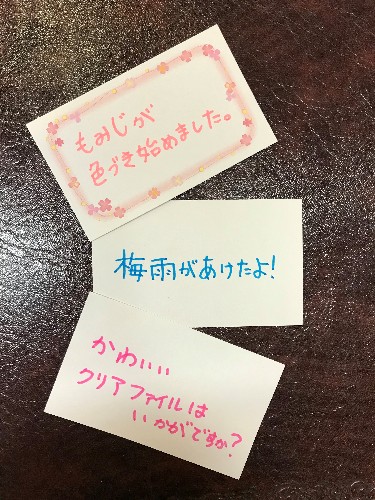 もみじが
色づき始めました。
梅雨があけたよ!
かわいい
クリアファイルは
いかがですか?